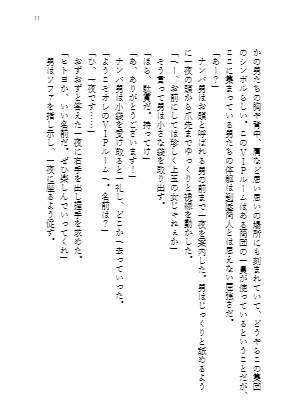 11
かの男たちの胸や背中、肩など思い思いの場所にも刻まれていて、どうやらこの集団
のシンボルらしい。このVIPルームはある商団の一員が使っているということだが、
ここに集まっている男たちの体躯は到底商人とは思えない屈強さだ。
「あー？」
ナンパ男はお頭と呼ばれる男の前まで一夜を案内した。男はじっくりと舐めるよう
に一夜の頭から爪先までゆっくりと視線を動かした。
「へー、お前にしては珍しく上玉の女じゃねぇか」
そう言って男は小さな袋を取り出す。
「ほら、駄賃だ。持ってけ」
「あ、ありがとうございます！」
ナンパ男は小袋を受け取ると一礼し、どこかへ去っていった。
「ようこそオレのVIPルームへ。名前は？」
「ひ、一夜です……」
おずおずと答えた一夜に右手を出し握手を求めた。
「ヒトヨか、いい名前だ。ぜひ楽しんでいってくれ」
男はソファを指し示し、一夜に座るよう促す。